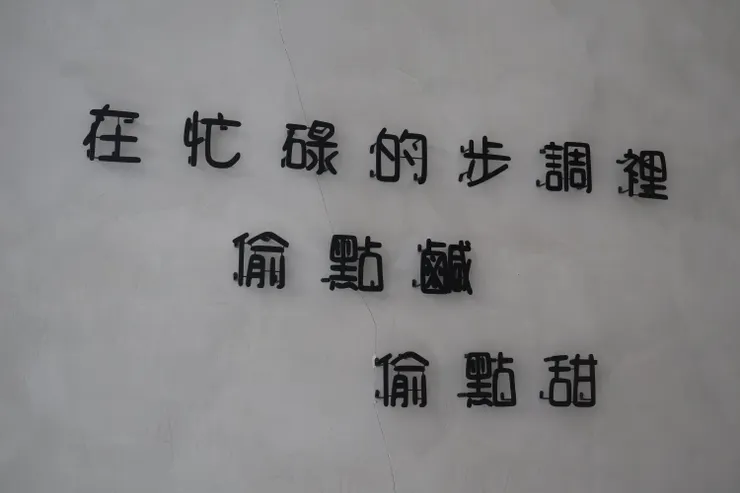 在忙碌的步調裡
偷點鹹
偷點甜